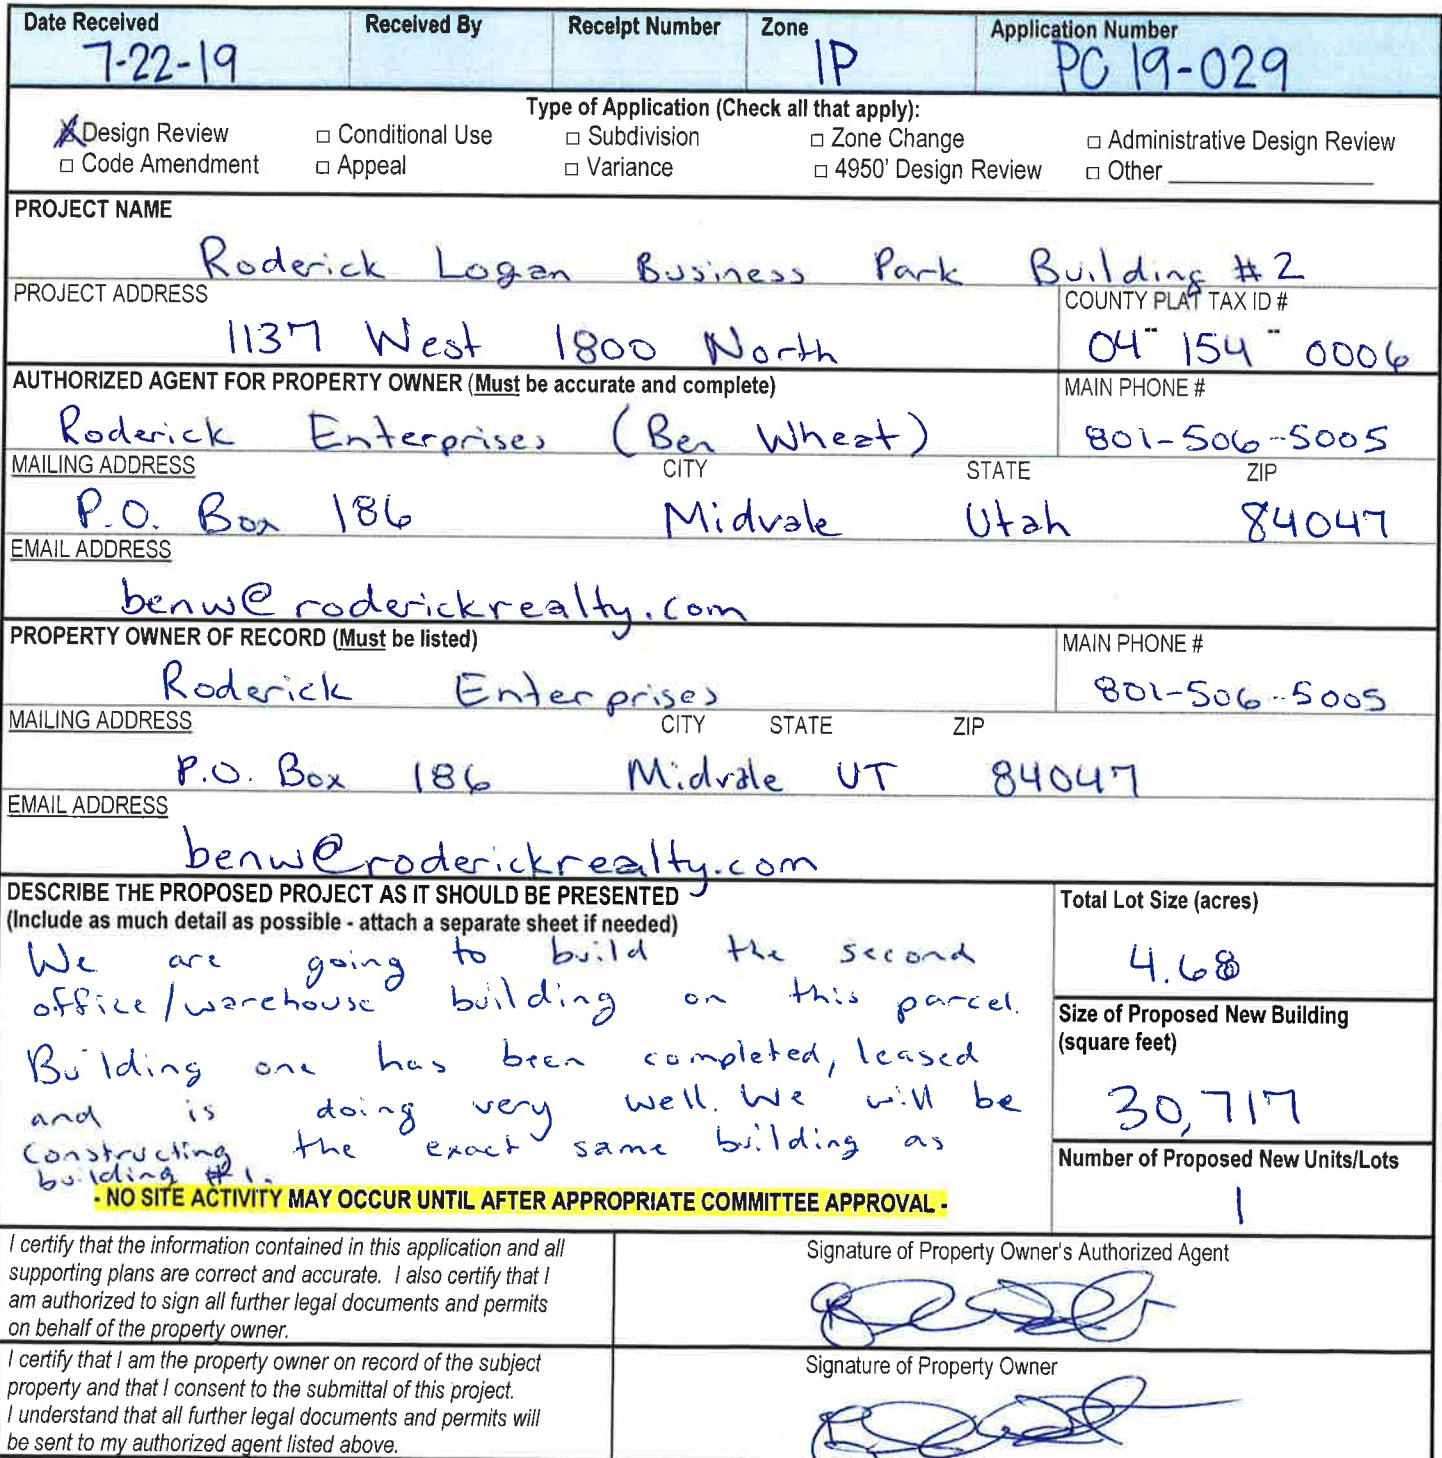 Date Received Received By Receipt Number Zone Application Number
7-22-19 IP PC 19-029
Type of Application (Check all that apply):
☒ Design Review □ Conditional Use □ Subdivision □ Zone Change □ Administrative Design Review
□ Code Amendment □ Appeal □ Variance □ 4950' Design Review □ Other ____________
PROJECT NAME
Roderick Logan Business Park Building #2
PROJECT ADDRESS COUNTY PLAT TAX ID #
1137 West 1800 North 04-154-0006
AUTHORIZED AGENT FOR PROPERTY OWNER (Must be accurate and complete) MAIN PHONE #
Roderick Enterprises (Ben Wheat) 801-506-5005
MAILING ADDRESS CITY STATE ZIP
P.O. Box 186 Midvale Utah 84047
EMAIL ADDRESS
benw@roderickrealty.com
PROPERTY OWNER OF RECORD (Must be listed) MAIN PHONE #
Roderick Enterprises 801-506-5005
MAILING ADDRESS CITY STATE ZIP
P.O. Box 186 Midvale UT 84047
EMAIL ADDRESS
benw@roderickrealty.com
DESCRIBE THE PROPOSED PROJECT AS IT SHOULD BE PRESENTED
(Include as much detail as possible - attach a separate sheet if needed)
We are going to build the second
office/warehouse building on this parcel.
Building one has been completed, leased
and is doing very well. We will be
constructing the exact same building as
building #1.
- NO SITE ACTIVITY MAY OCCUR UNTIL AFTER APPROPRIATE COMMITTEE APPROVAL -
Total Lot Size (acres)
4.68
Size of Proposed New Building
(square feet)
30,717
Number of Proposed New Units/Lots
1
I certify that the information contained in this application and all
supporting plans are correct and accurate. I also certify that I
am authorized to sign all further legal documents and permits
on behalf of the property owner.
Signature of Property Owner's Authorized Agent
I certify that I am the property owner on record of the subject
property and that I consent to the submittal of this project.
I understand that all further legal documents and permits will
be sent to my authorized agent listed above.
Signature of Property Owner